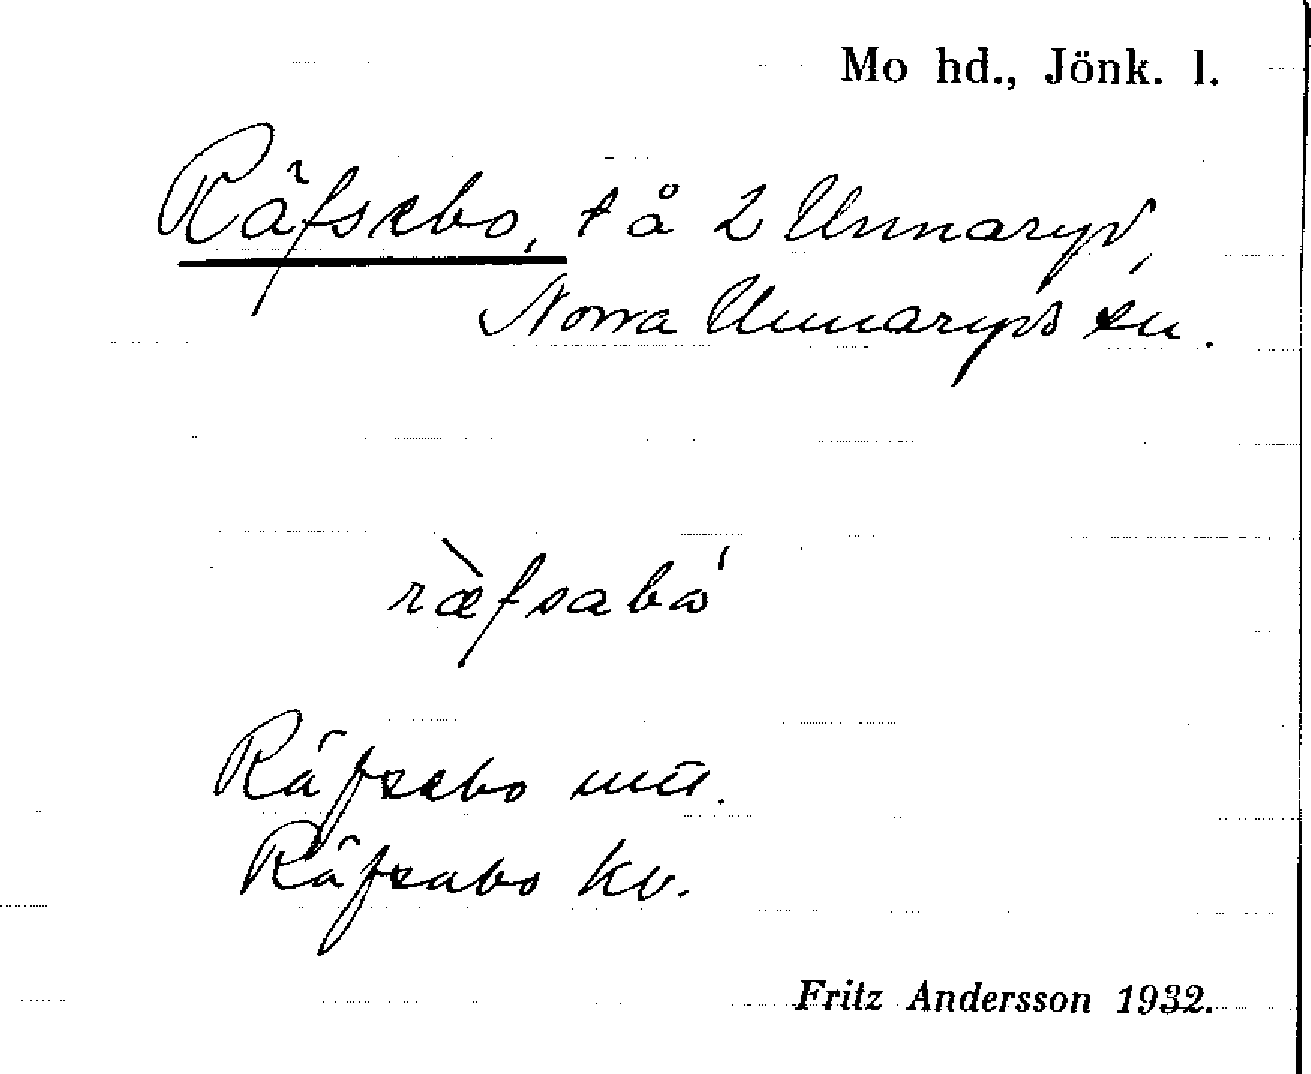 Mo hd., Jönk. l.
Räfsebo, t å 2 Unnaryd,
Norra Unnaryds sn.
ræ̀fsabó
Räfsebo mtl.
Räfsabo kv.
Fritz Andersson 1932.